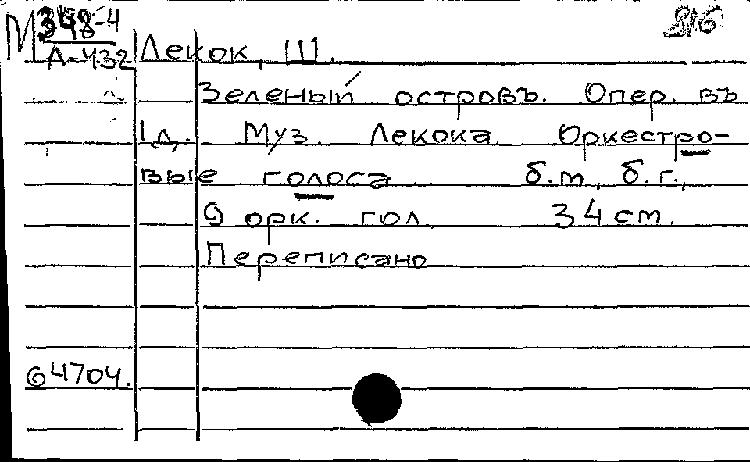 М 348-4 216
А-432 Лекок, Ш.
Зеленый островъ. Опер. въ
1 д. Муз. Лекока Оркестро-
вые голоса б.м., б.г.,
9 орк. гол. 34 см.
Переписано
64704.